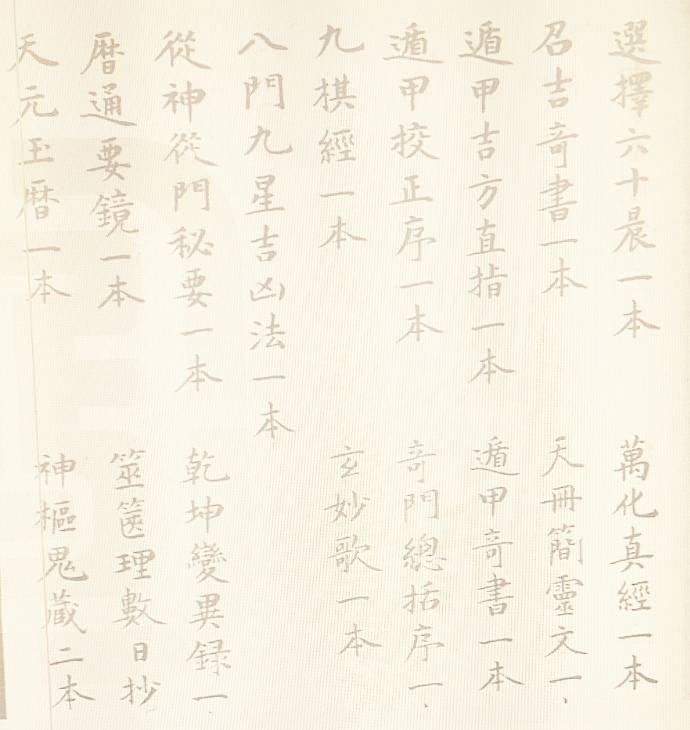 選擇六十晨一本
萬化真經一本
召吉竒書一本
天冊簡靈文一
遁甲吉方直指一本
遁甲竒書一本
遁甲挍正序一本
竒門總括序一
九棋經一本
玄妙歌一本
八門九星吉凶法一本
從神從門秘要一本
乾坤變異録一
暦通要鏡一本
筮篋理數日抄
天元玉暦一本
神樞鬼蔵二本